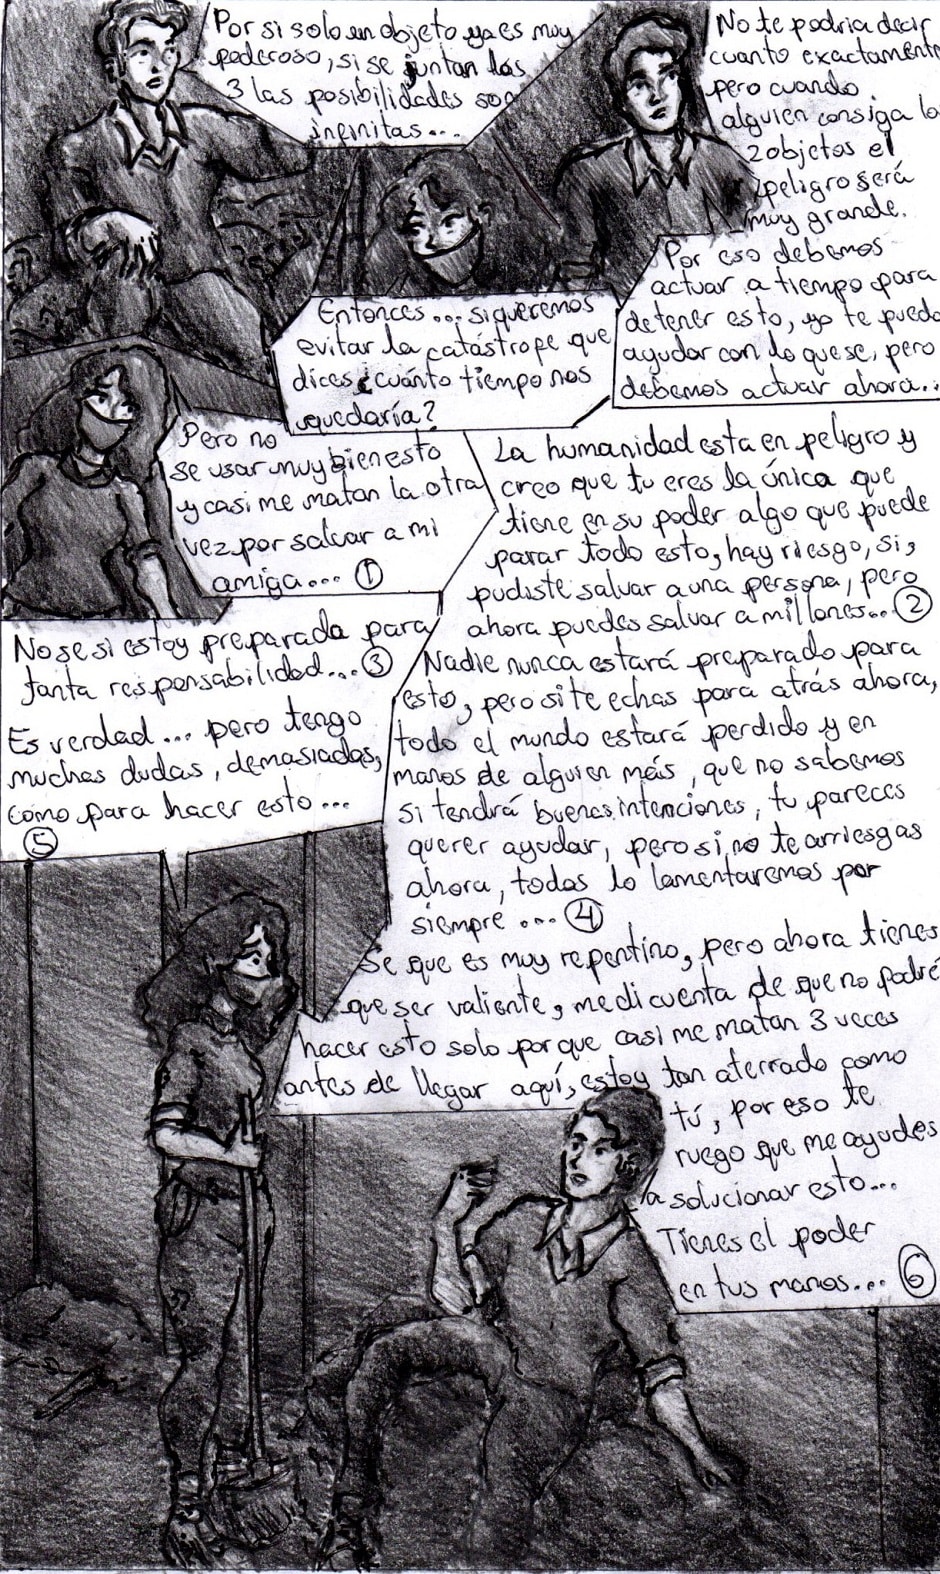 Por si solo un objeto ya es muy
poderoso, si se juntan los
3 las posibilidades son
infinitas...
Entonces... si queremos
evitar la catástrope que
dices ¿cuánto tiempo nos
quedaría?
No te podria decir
cuanto exactamente
pero cuando
alguien consiga lo
2 objetos el
peligro será
muy grande.
Por eso debemos
actuar a tiempo para
detener esto, yo te puedo
ayudar con lo que se, pero
debemos actuar ahora...
Pero no
se usar muy bien esto
y casi me matan la otra
vez por salvar a mi
amiga... 1
La humanidad esta en peligro y
creo que tu eres la única que
tiene en su poder algo que puede
parar todo esto, hay riesgo, si,
pudiste salvar a una persona, pero
ahora puedes salvar a millones... 2
No se si estoy preparada para
tanta responsabilidad... 3
Nadie nunca estará preparado para
esto, pero si te echas para atrás ahora,
todo el mundo estará perdido y en
manos de alguien más, que no sabemos
si tendrá buenas intenciones, tu pareces
querer ayudar, pero si no te arriesgas
ahora, todos lo lamentaremos por
siempre... 4
Es verdad... pero tengo
muchas dudas, demasiadas,
como para hacer esto...
5
Se que es muy repentino, pero ahora tienes
que ser valiente, me di cuenta de que no podré
hacer esto solo porque casi me matan 3 veces
antes de llegar aquí, estoy tan aterrado como
tú, por eso te
ruego que me ayudes
a solucionar esto...
Tienes el poder
en tus manos... 6